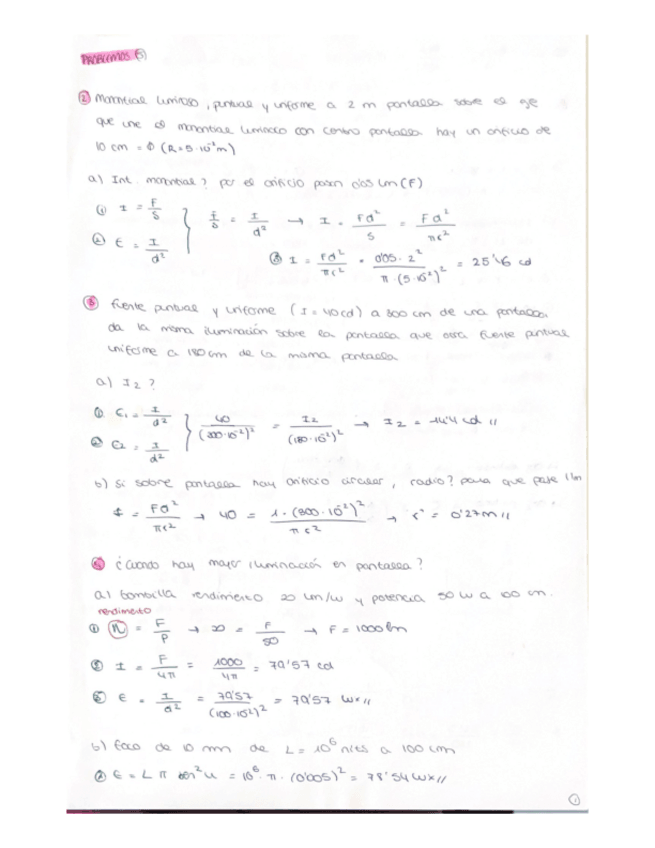 PROBLEMAS (5)
② Manantial luminoso, puntual y uniforme a 2 m pantalla sobre el eje
que une el manantial luminoso con centro pantalla hay un orificio de
10 cm = Φ (R=5·10⁻²m)
a) Int. manantial? por el orificio pasan 0'05 lm (F)
① I = F/S
② E = I/d²
} F/S = I/d² → I = Fd²/S = Fd²/πr²
③ I = Fd²/πr² = 0'05·2²/π·(5·10⁻²)² = 25'46 cd
③ Fuente puntual y uniforme (I = 40cd) a 300 cm de una pantalla
da la misma iluminación sobre la pantalla que otra fuente puntual
uniforme a 180 cm de la misma pantalla
a) I₂?
① E₁ = I/d²
② E₂ = I/d²
} 40/(300·10⁻²)² = I₂/(180·10⁻²)² → I₂ = 14'4 cd //
b) Si sobre pantalla hay orificio circular, radio? para que pase 1 lm
I = Fd²/πr² → 40 = 1·(300·10⁻²)²/πr² → r = 0'27m //
④ ¿Cuando hay mayor iluminación en pantalla?
a) bombilla rendimiento 20 lm/W y potencia 50 W a 100 cm.
rendimiento
① η = F/P → 20 = F/50 → F = 1000 lm
② I = F/4π = 1000/4π = 79'57 cd
③ E = I/d² = 79'57/(100·10⁻²)² = 79'57 lux //
b) foco de 10 mm de L = 10⁶ nits a 100 cm
② E = L π sen²u = 10⁶·π·(0'005)² = 78'54 lux //
1